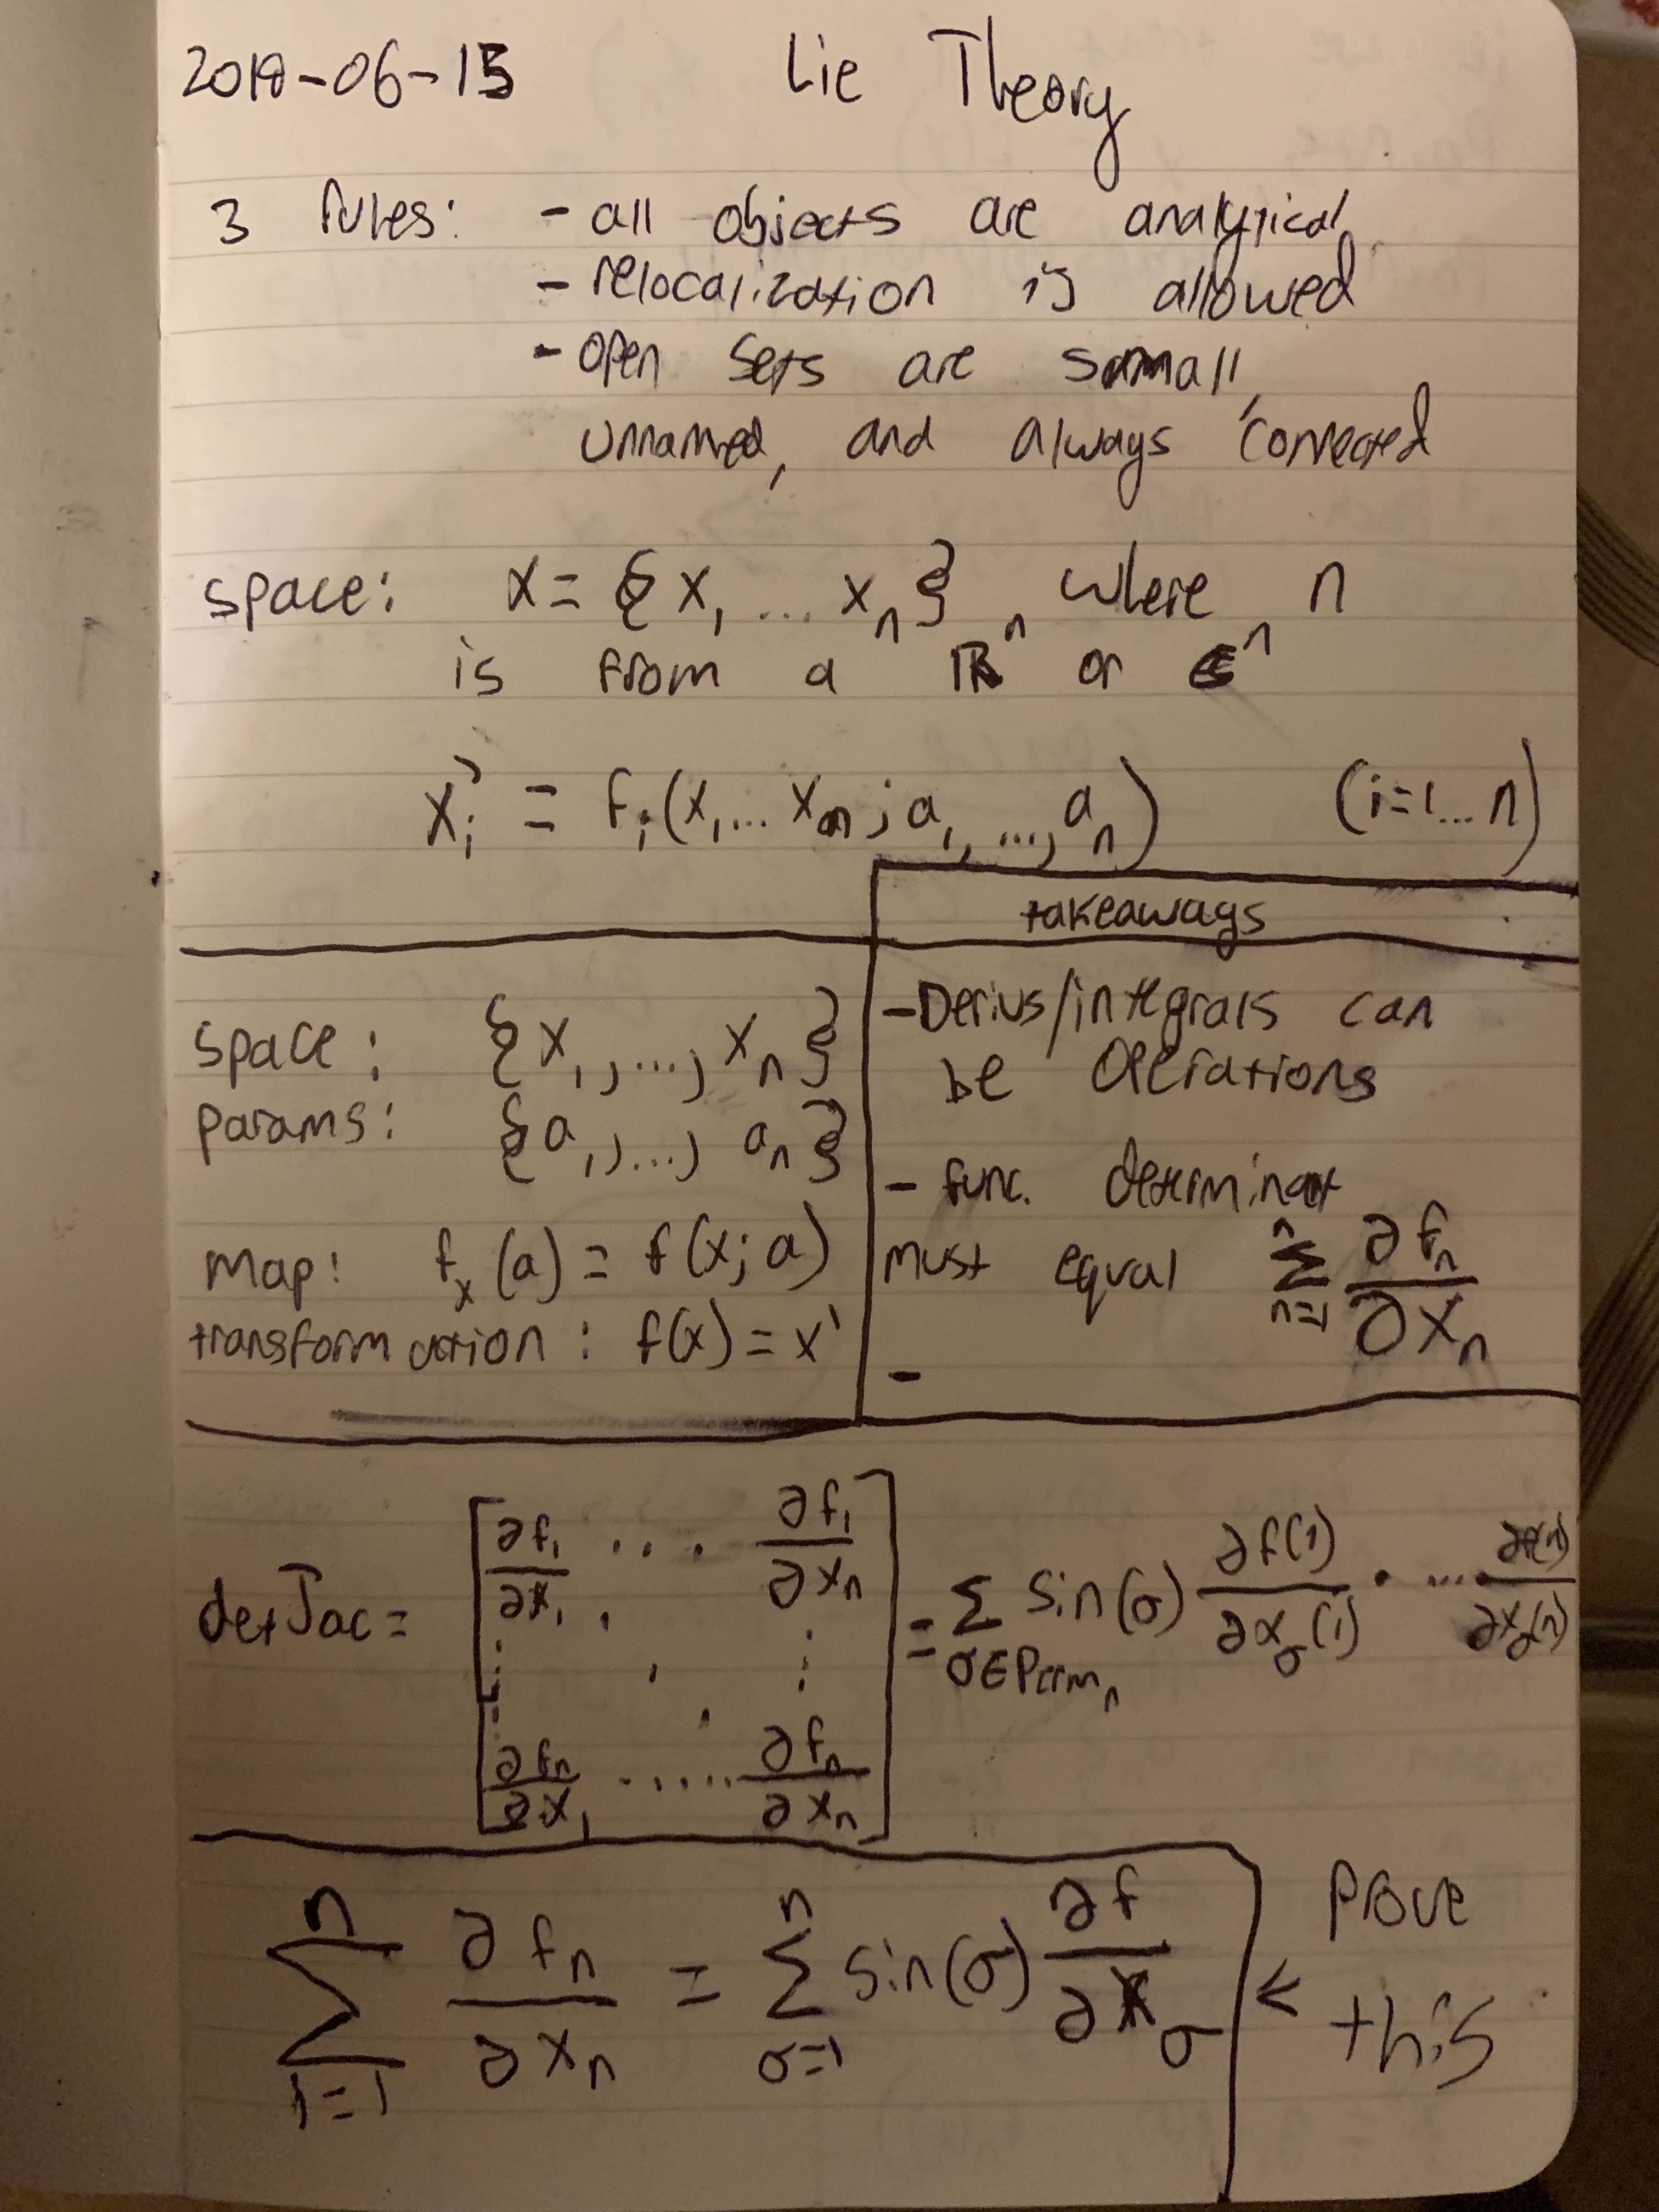 2018-06-15 Lie Theory
3 rules: - all objects are analytical
- relocalization is allowed
- open sets are small,
unnamed, and always connected
space: x = {x₁ ... xₙ} where n
is from a ℝⁿ or ℂⁿ
xᵢ' = fᵢ(x₁ ... xₙ; a₁, ..., aₙ) (i=1...n)
space: {x₁, ..., xₙ}
params: {a₁, ..., aₙ}
map: fₓ(a) = f(x; a)
transformation: f(x) = x'
takeaways
- Derivs/integrals can
be operations
- func. determinant
must equal ∑ⁿₙ₌₁ ∂fₙ/∂xₙ
-
det Jac = [∂f₁/∂x₁ ... ∂f₁/∂xₙ
⋮ ⋱ ⋮
∂fₙ/∂x₁ ..... ∂fₙ/∂xₙ] = ∑ σ∈Permₙ sin(σ) ∂f(1)/∂x_σ(1) · ... ∂f(n)/∂x_σ(n)
∑ⁿᵢ₌₁ ∂fₙ/∂xₙ = ∑ⁿ σ=1 sin(σ) ∂f/∂x_σ < Prove
this